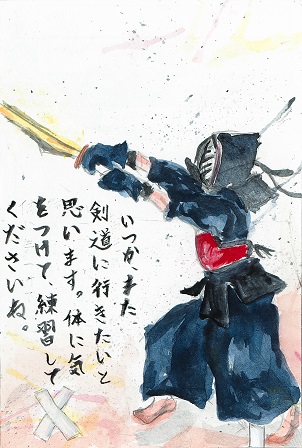 いつか、また
剣道に行きたいと
思います。体に気
をつけて、練習して
くださいね。